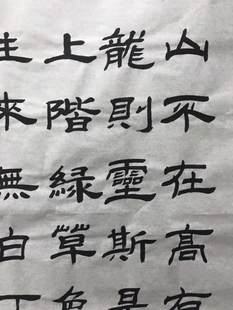 山不在高有
龍則靈斯是
上階綠草色
往來無白丁